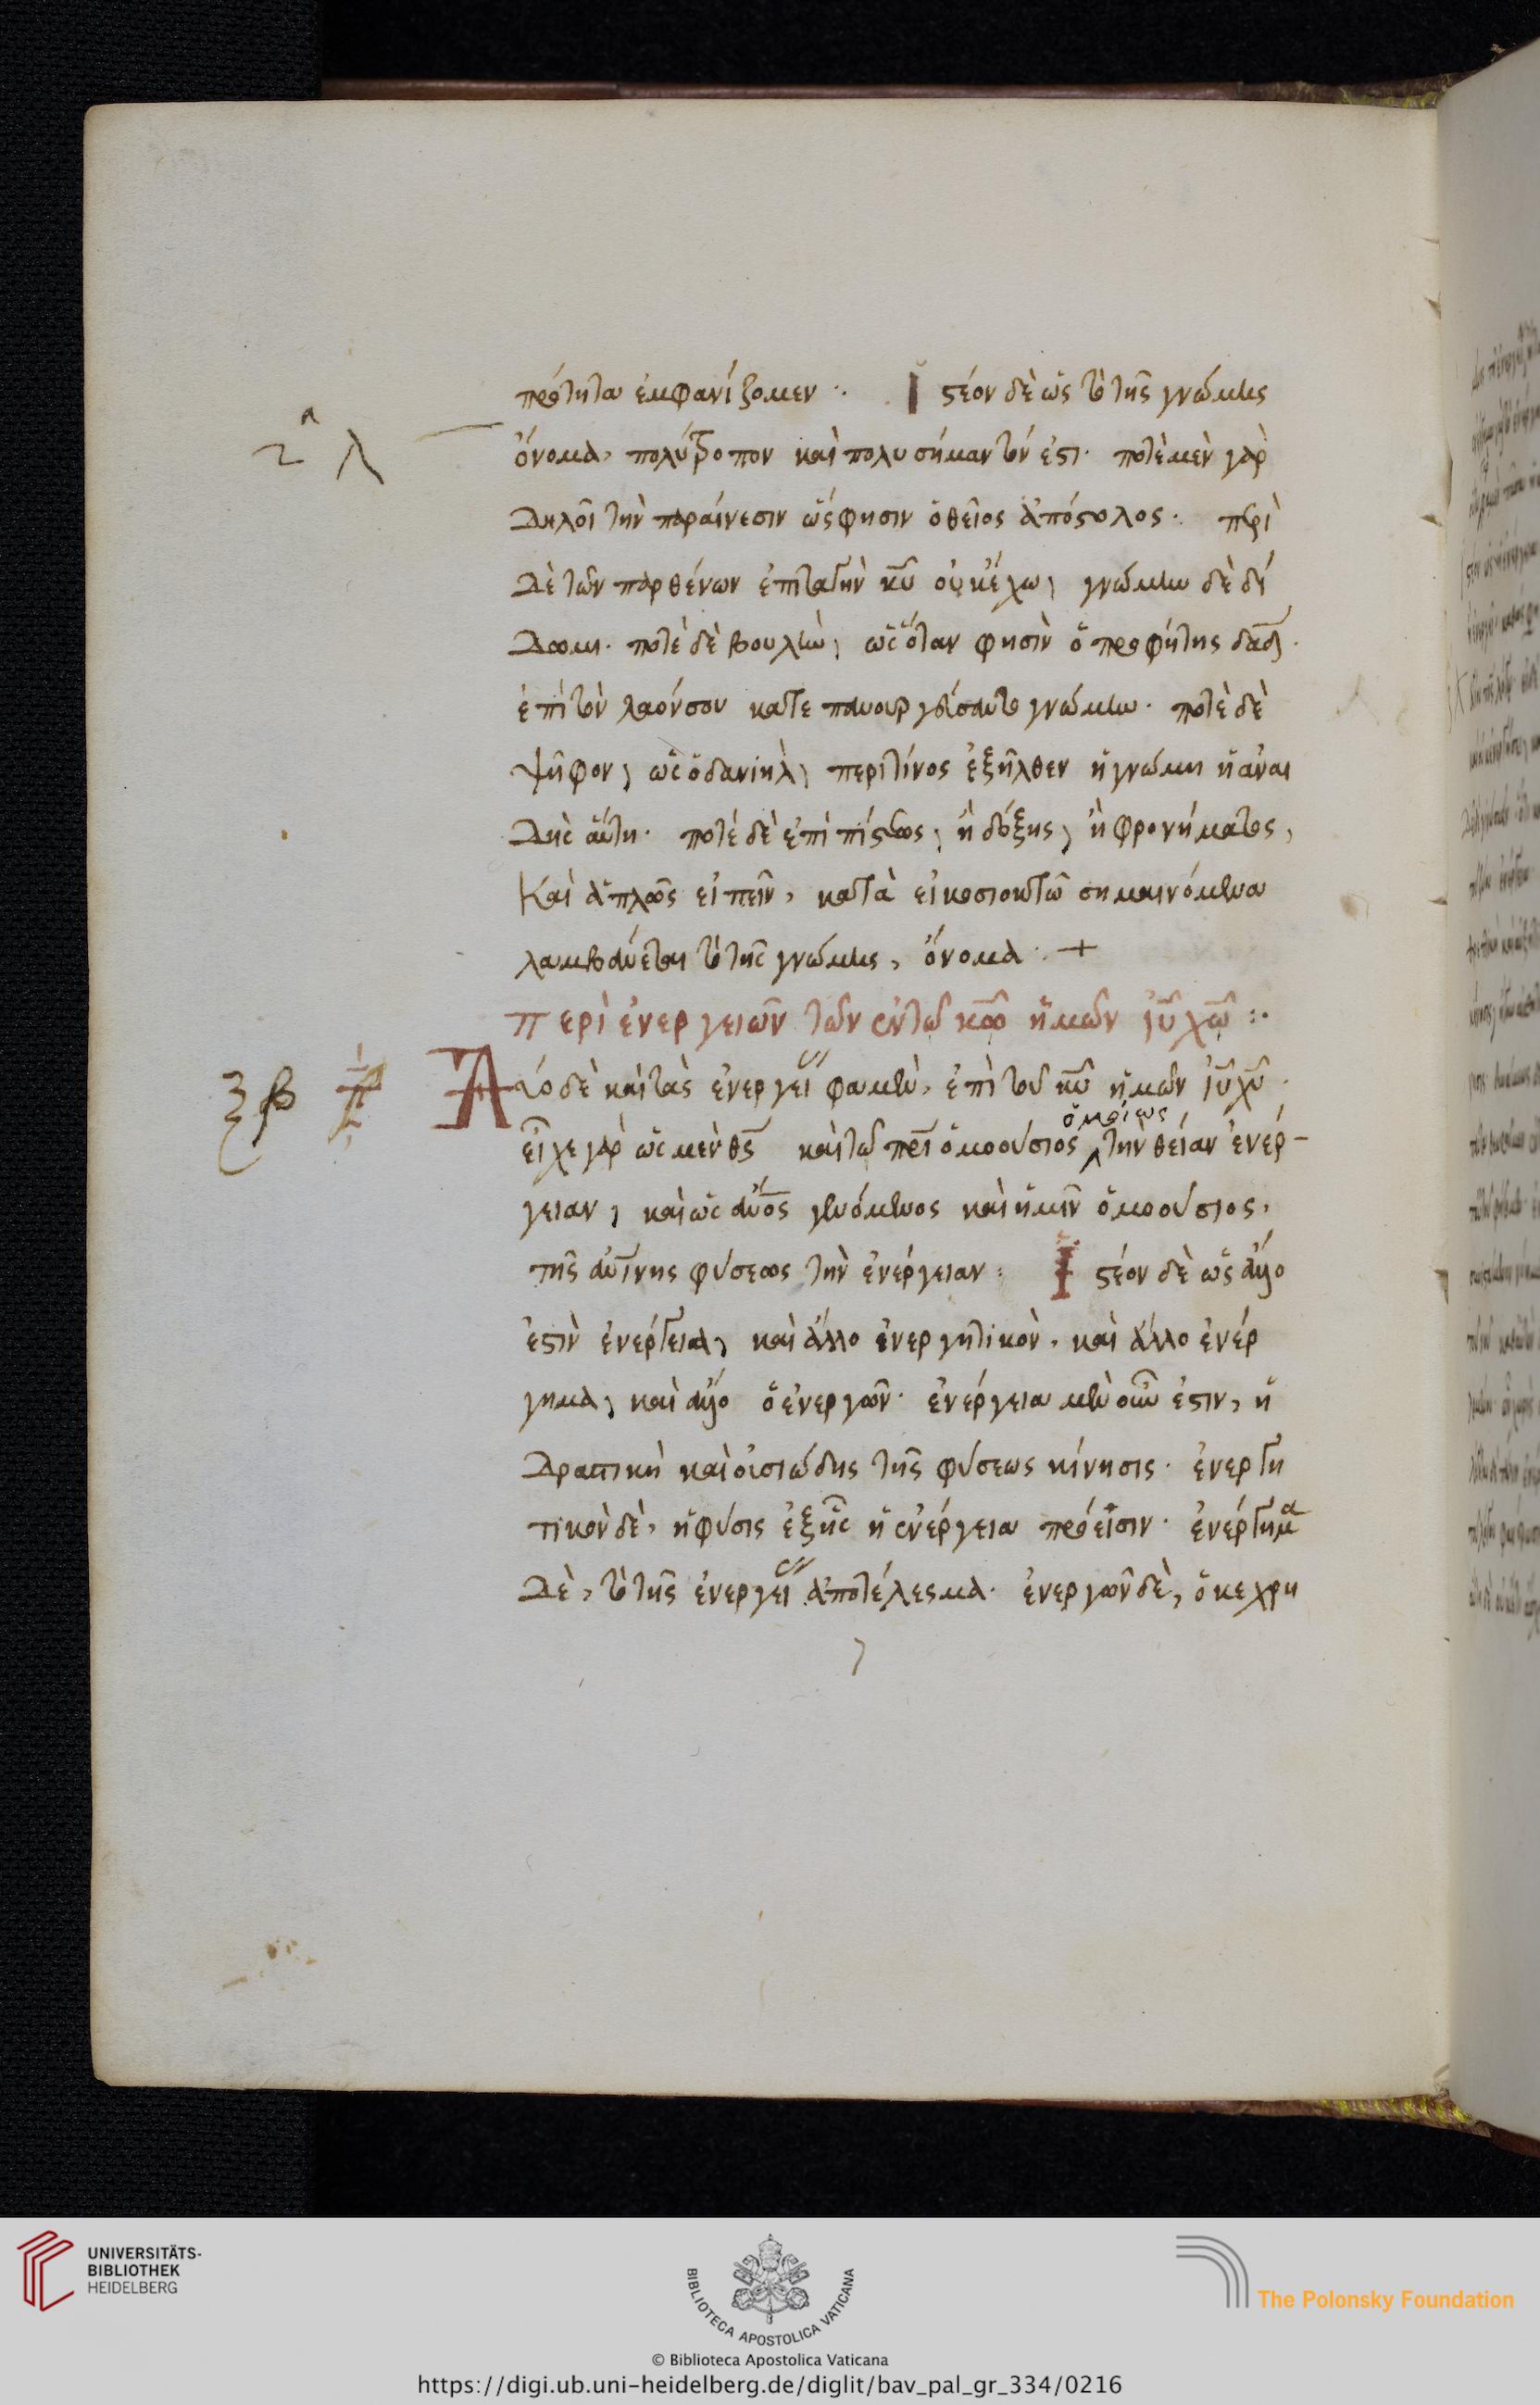 πρότητα ἐμφανίζομεν ·. Ἰστέον δὲ ὡς τὸ τῆς γνώμης
ὄνομα, πολύτροπον καὶ πολυσήμαντόν ἐστι· ποτὲ μὲν γὰρ
δηλοῖ τὴν παραίνεσιν ὥς φησιν ὁ θεῖος ἀπόστολος· περὶ
δὲ τῶν παρθένων ἐπιταγὴν κυ οὐκ ἔχω, γνώμην δὲ δί
δωμι· ποτὲ δὲ βουλὴν, ὡς ὅταν φησὶν ὁ προφήτης δαδ·
ἐπὶ τὸν λαόν σου κατεπανουργεύσαντο γνώμην· ποτὲ δὲ
ψῆφον, ὡς ὁ δανιὴλ, περὶ τίνος ἐξῆλθεν ἡ γνώμη ἡ ἀναι
δὴς αὕτη· ποτὲ δὲ ἐπὶ πίστεως, ἢ δόξης, ἢ φρονήματος,
Καὶ ἁπλῶς εἰπεῖν, κατὰ εἰκοσιοκτὼ σημαινόμενα
λαμβάνεται τὸ τῆς γνώμης, ὄνομα · +
περὶ ἐνεργειῶν τῶν ἐν τῷ κω ἡμῶν ιυ χω :·
ξβ
Δύο δὲ καὶ τὰς ἐνεργείας φαμὲν, ἐπὶ τοῦ κυ ἡμῶν ιυ χυ·
ὁμοίως
εἶχε γὰρ ὡς μὲν θς καὶ τῷ πρι ὁμοούσιος τὴν θείαν ἐνέρ-
γειαν, καὶ ὡς ανος γενόμενος καὶ ἡμῖν ὁμοούσιος,
τῆς ανίνης φύσεως τὴν ἐνέργειαν : Ἰστέον δὲ ὡς ἄλλο
ἐστὶν ἐνέργεια, καὶ ἄλλο ἐνεργητικὸν, καὶ ἄλλο ἐνέρ
γημα, καὶ ἄλλο ὁ ἐνεργῶν· ἐνέργεια μὲν οὖν ἐστιν, ἡ
δραστικὴ καὶ οὐσιώδης τῆς φύσεως κίνησις· ἐνεργη
τικὸν δὲ, ἡ φύσις ἐξ ἧς ἡ ἐνέργεια πρόεισιν· ἐνέργημα
δὲ, τὸ τῆς ἐνεργείας ἀποτέλεσμα· ἐνεργῶν δὲ, ὁ κεχρη
UNIVERSITÄTS-
BIBLIOTHEK
HEIDELBERG
BIBLIOTECA APOSTOLICA VATICANA
The Polonsky Foundation
© Biblioteca Apostolica Vaticana
https://digi.ub.uni-heidelberg.de/diglit/bav_pal_gr_334/0216